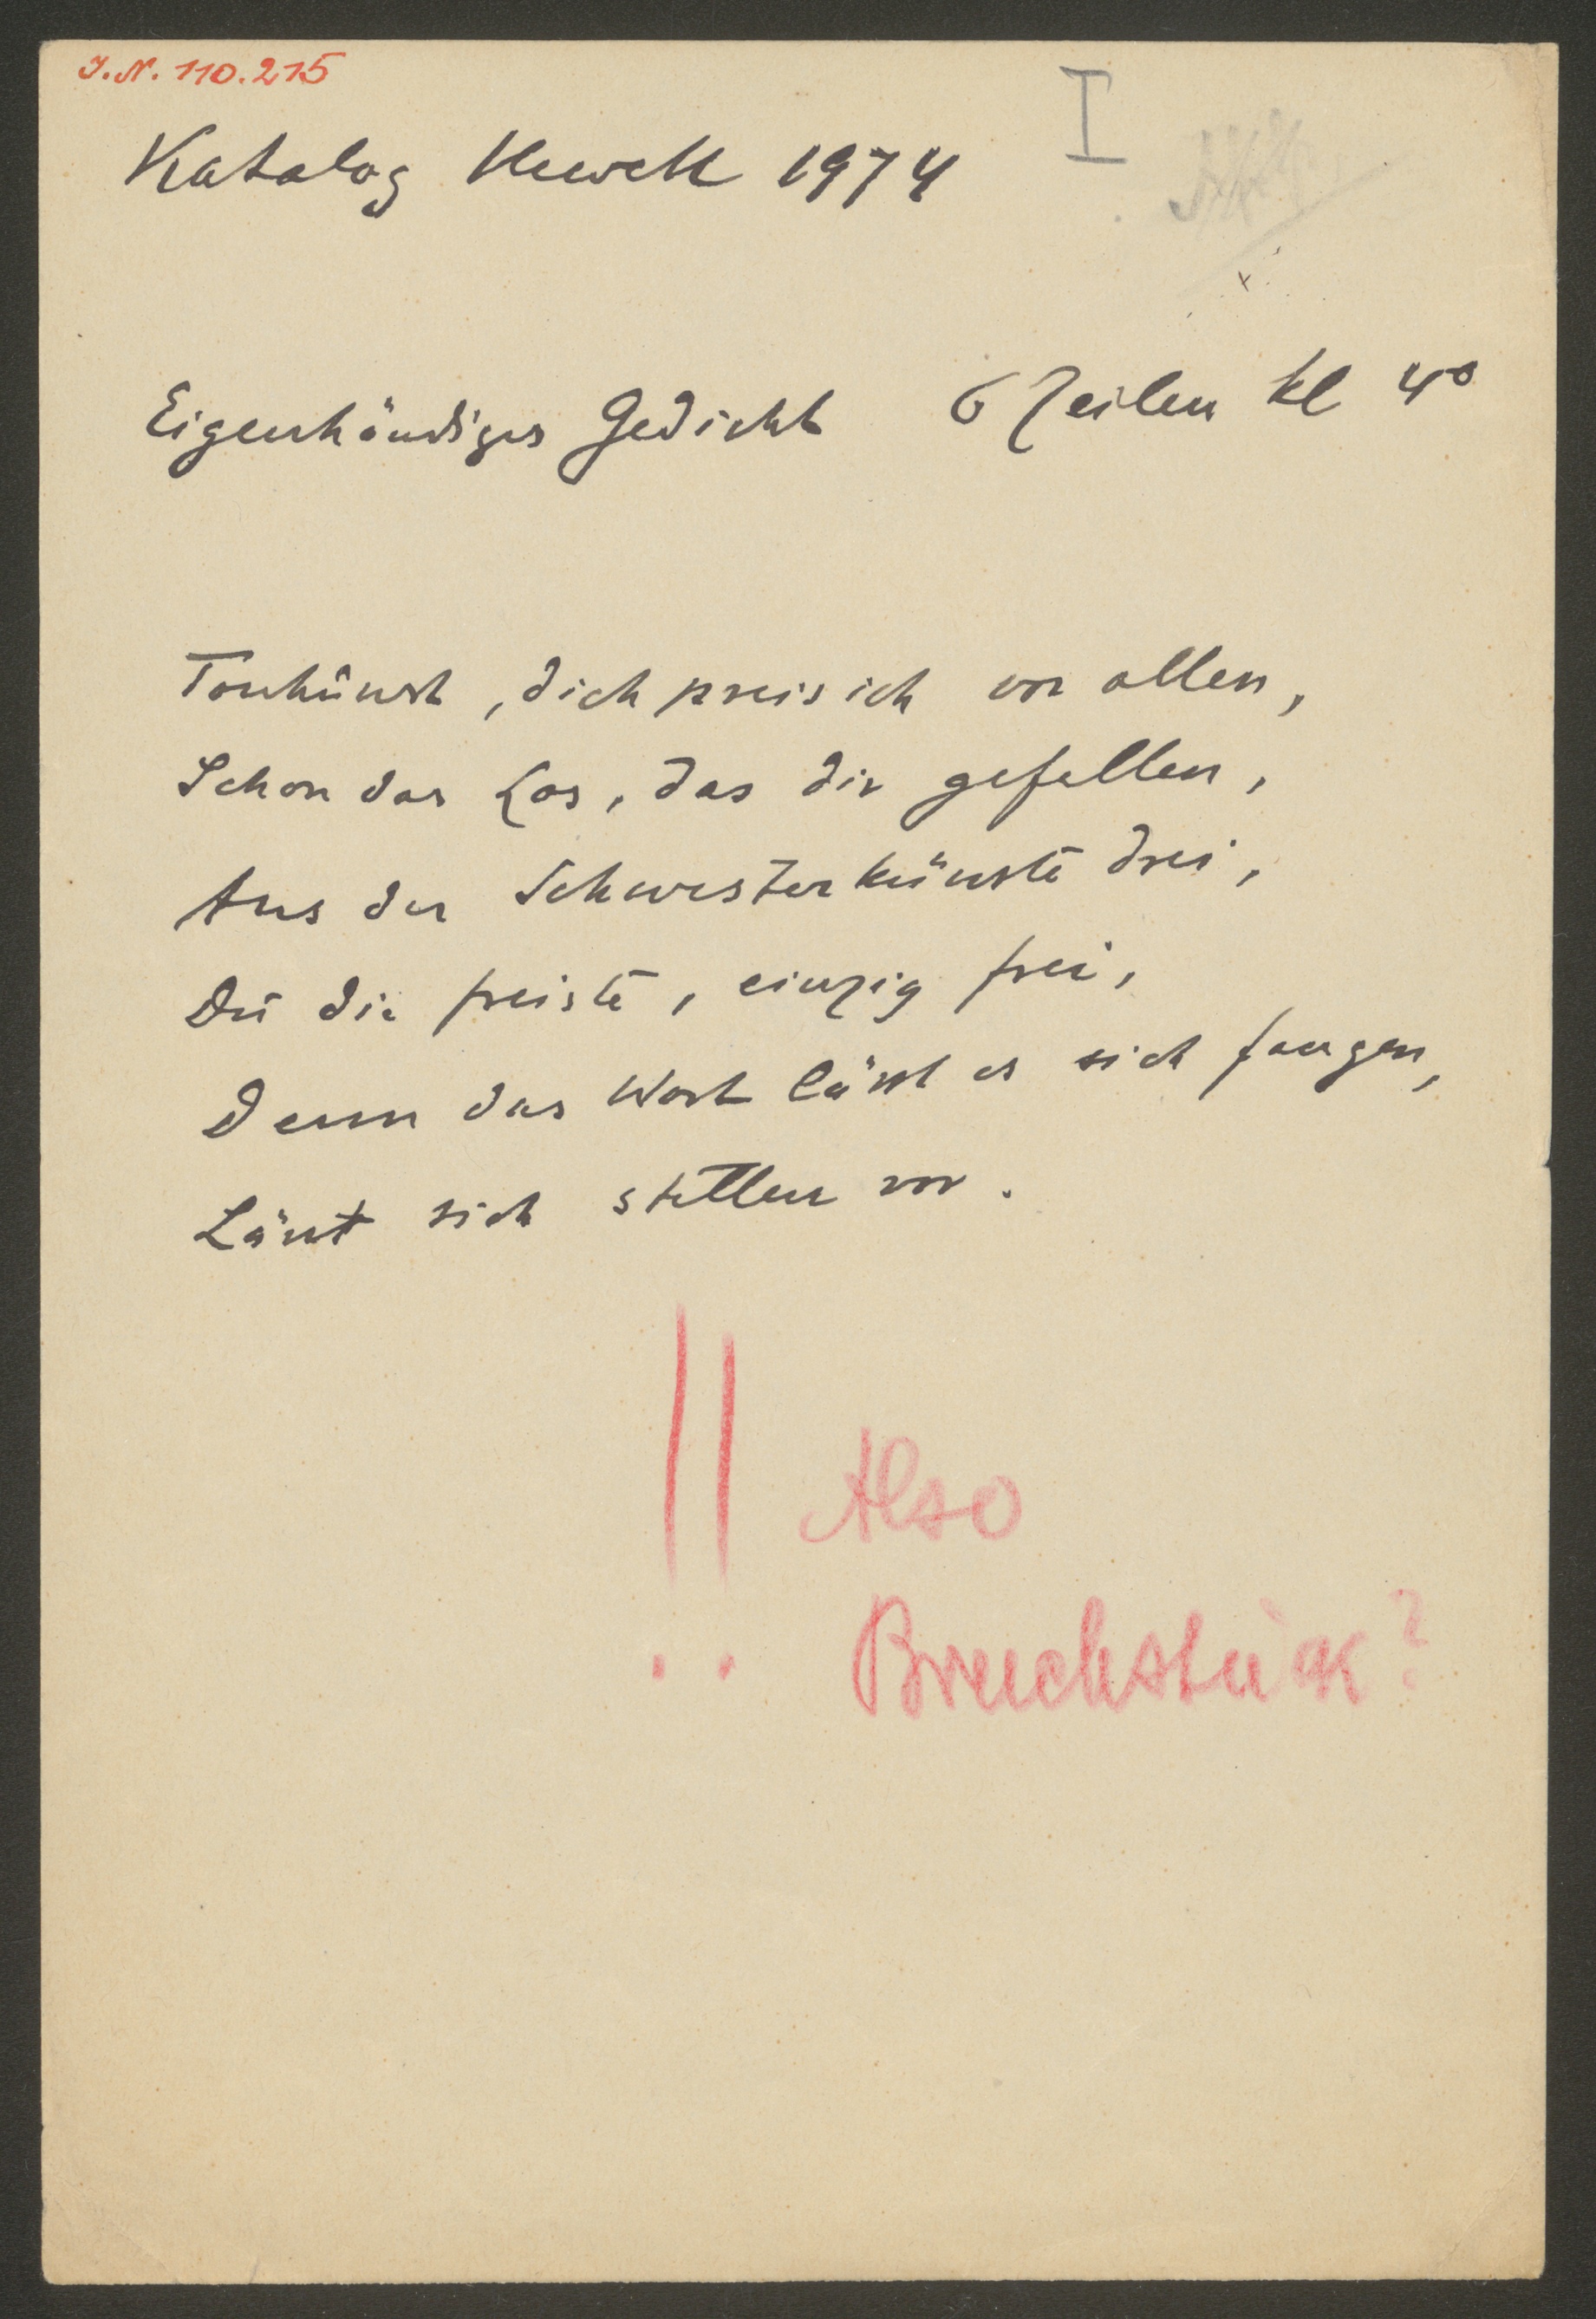 J.N. 110.215
I
Katalog 1974
Eigenhändiges Gedicht 6 Zeilen kl 4°
Tonkunst, dich preis ich vor allen,
Schon das Los, das dir gefallen,
Aus der Schwesterkünste drei,
Du die freiste, einzig frei,
Denn das Wort lässt es sich fangen,
Lässt sich stellen vor.
!! Also
Bruchstück?